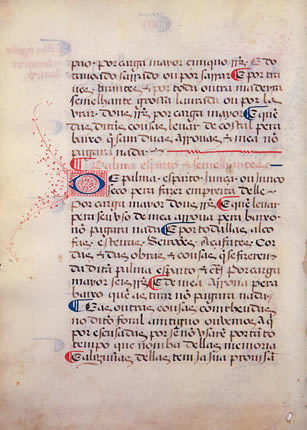 pao. por carga mayor cinquo rrs. E do
tonoado sarrado ou por sarrar. E por tra
ues. tirantes. & por toda outra madeira
semelhante grossa laurada ou por la
urar. dous rrs. por carga mayor. E que
das ditas cousas leuar. de costal pera
baixo q̃ sam duas arrouas & mea nõ
pagara nada.
Palma esparto & semelhantes
DE palma. esparto. Junco. ou Junco
seco pera fazer empreita delle.
Por carga mayor dous rrs. E que leuar
pera seu vso de mea arroua pera baixo
nõ pagara nada. E por todallas alco
fas. esteiras. Seirões. Açafates. Cor
das. & das obras. & cousas q̃ se fizerem
da dita palma esparto & cetera por carga
mayor seis rrs. E de mea arroua pera
baixo que as tirar nõ pagara nada.
E as outras cousas comtheudas
no dito foral antiguo ouuemos aq̃
por escusadas por se nõ vsarẽ por tãto
tempo que nõ ha dellas memoria
E algũas dellas tem Ja sua prouisã